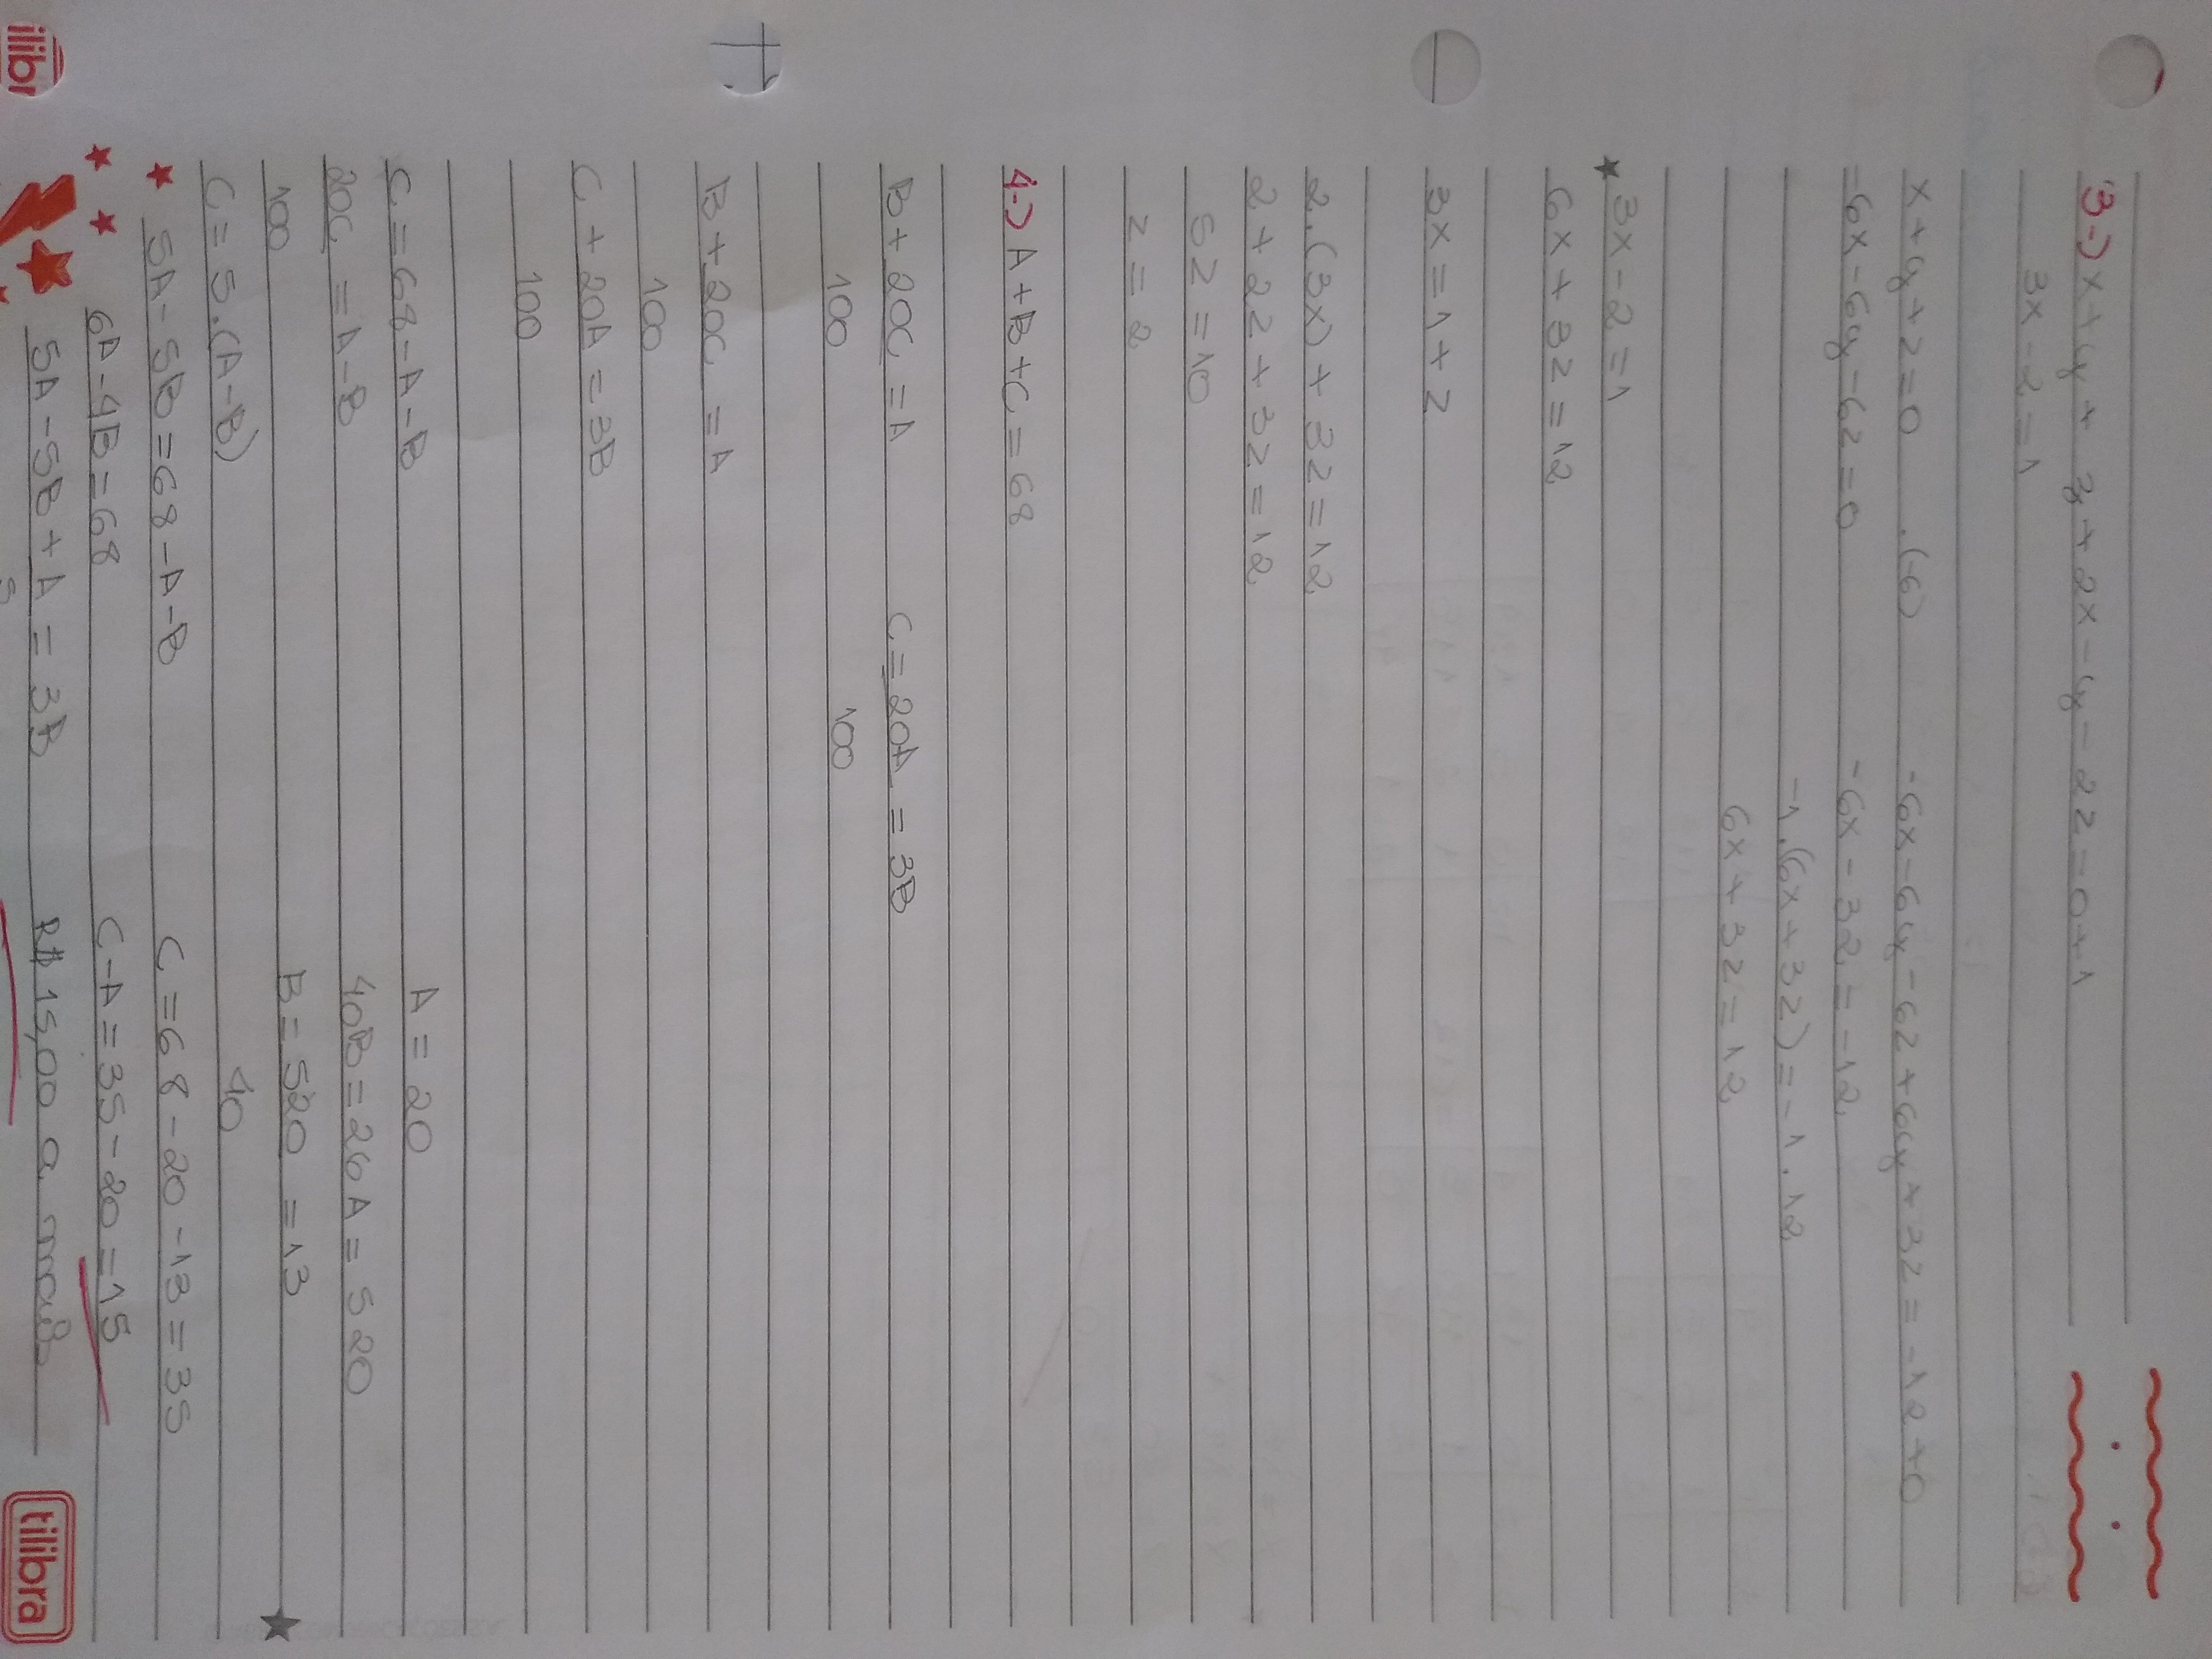 3-) x+y+ z+2x-y-2z=0+1
3x-z=1
x+y+z=0 .(-6)
-6x-6y-6z=0
-6x-6y-6z+6y+3z=-12+0
-6x-3z=-12
-1.(6x+3z)=-1.12
6x+3z=12
3x-z=1
6x+3z=12
3x=1+z
2.(3x)+3z=12
2+2z+3z=12
5z=10
z=2
4-) A+B+C=68
B+20C=A C=20A=3B
100 100
B+20C=A
100
C+20A=3B
100
C=68-A-B
20C=A-B
100
C=5.(A-B)
5A-5B=68-A-B
6A-4B=68
5A-5B+A=3B
5
A=20
40B=26A=520
B=520=13
40
C=68-20-13=35
C-A=35-20=15
R$15,00 a mais
ilibr
tilibra